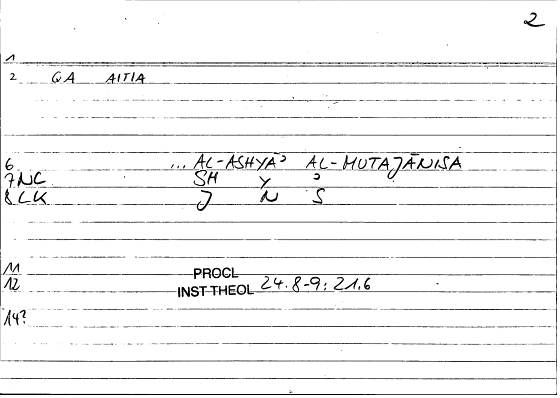 2
1
2 QA AITIA
6 ... AL-ASHYĀʾ AL-MUTAJĀNISA
7 NC SH Y ʾ
8 LK J N S
11
12 PROCL INST THEOL 24.8-9: 21.6
14?